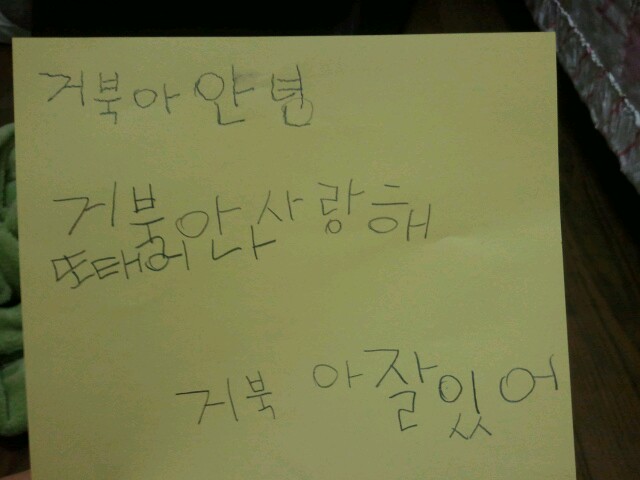 거북아 안녕
거북아 사랑해
또 태어나
거북아 잘있어